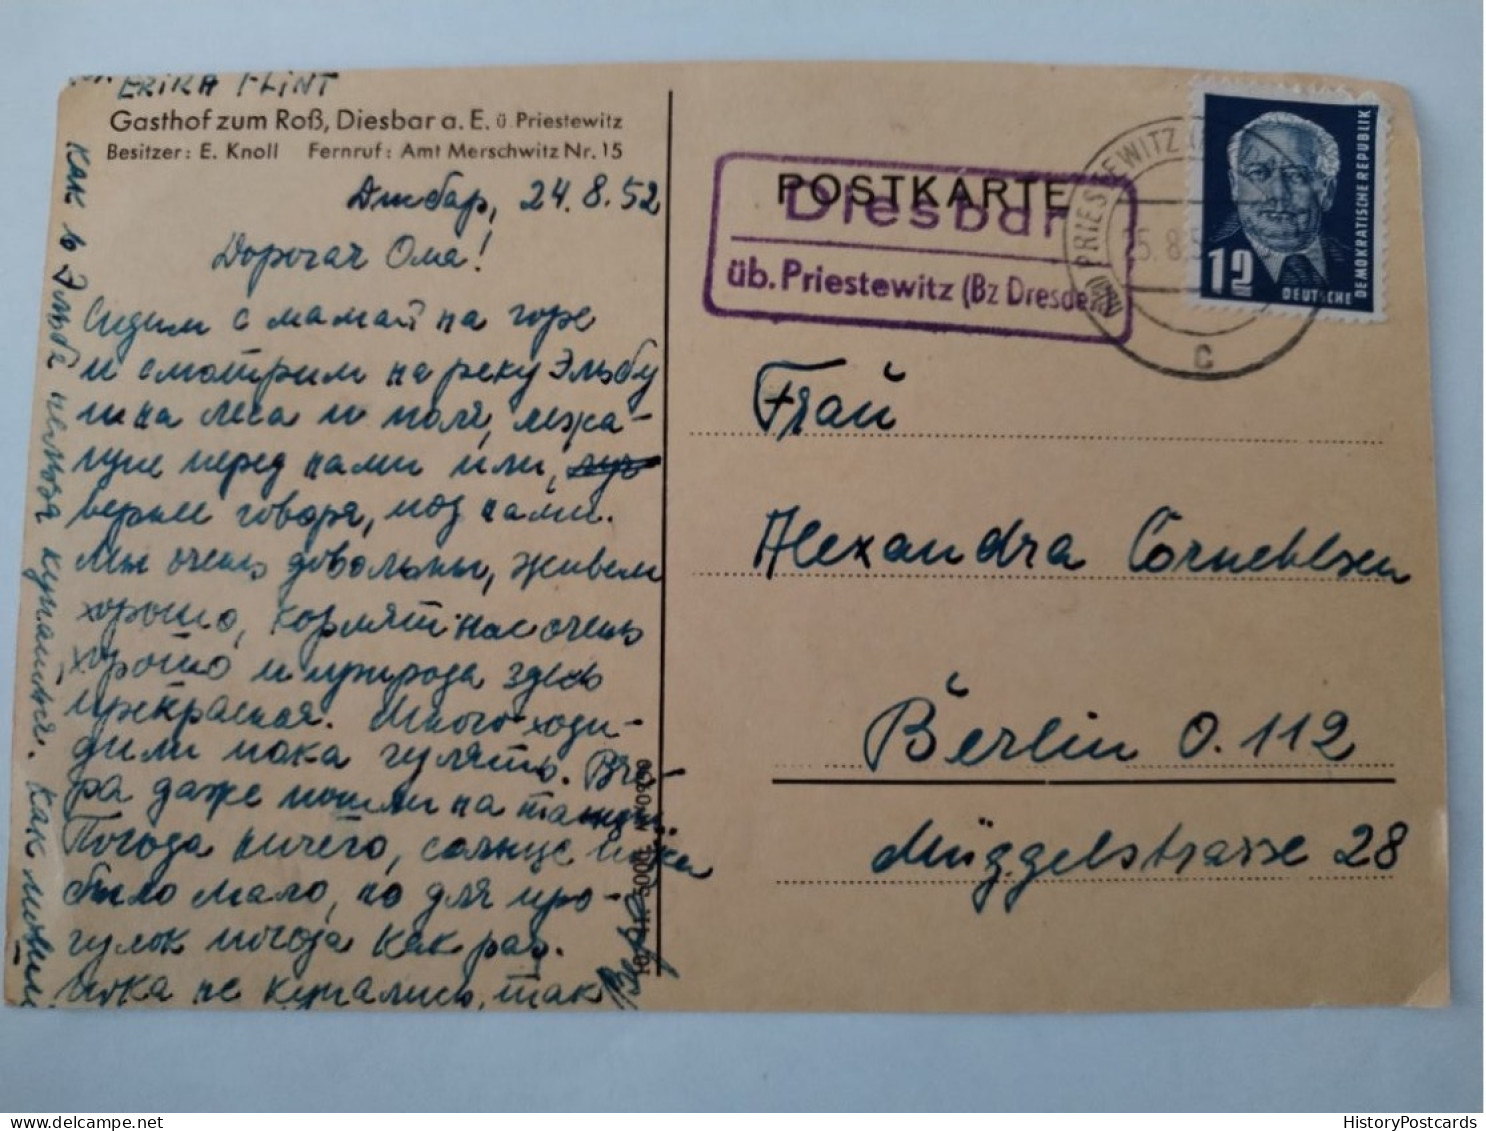 ERIKA FLINT
Gasthof zum Roß, Diesbar a. E. ü. Priestewitz
Besitzer: E. Knoll Fernruf: Amt Merschwitz Nr. 15
Дисбар, 24.8.52
Дорогая Ома!
Сидим с мамай на горе
и смотрим на реку Эльбу
и на леса и поля, лежа-
щие перед нами или,
верней говоря, под нами.
Мы очень довольны, живем
хорошо, кормят нас очень
хорошо и природа здесь
прекрасная. Много ходи-
дили пока гулять. Вче-
ра даже пошли на танцы.
Погода ничего, солнце пока
было мало, но для про-
гулок погода как раз.
Пока не купались, так
как в Эльбе нельзя купаться. Как
Вера
POSTKARTE
Diesbar
üb. Priestewitz (Bz Dresden)
PRIESTEWITZ
25.8.5
c
12
DEUTSCHE
DEMOKRATISCHE REPUBLIK
Frau
Alexandra Cornehlsen
Berlin O.112
Müggelstrasse 28
delcampe.net
HistoryPostcards